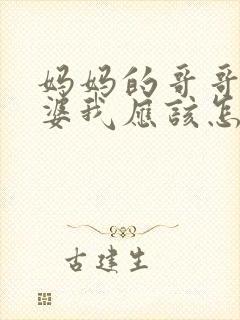 妈妈的哥哥
婆我应该怎
古建生